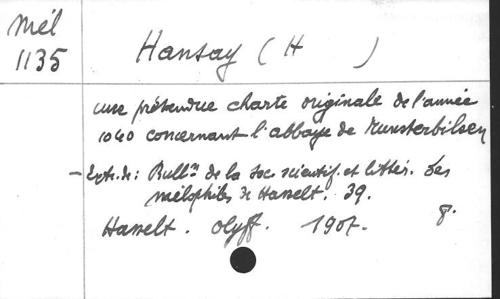 Mél
1135
Hansay (H )
une prétendue charte originale de l'année
1040 concernant l'abbaye de Munsterbilsen
- Extr. de: Bull.n de la Soc. scientif. et littér. des
mélophiles de Hasselt. 39.
Hasselt. Olyff. 1907. 8.